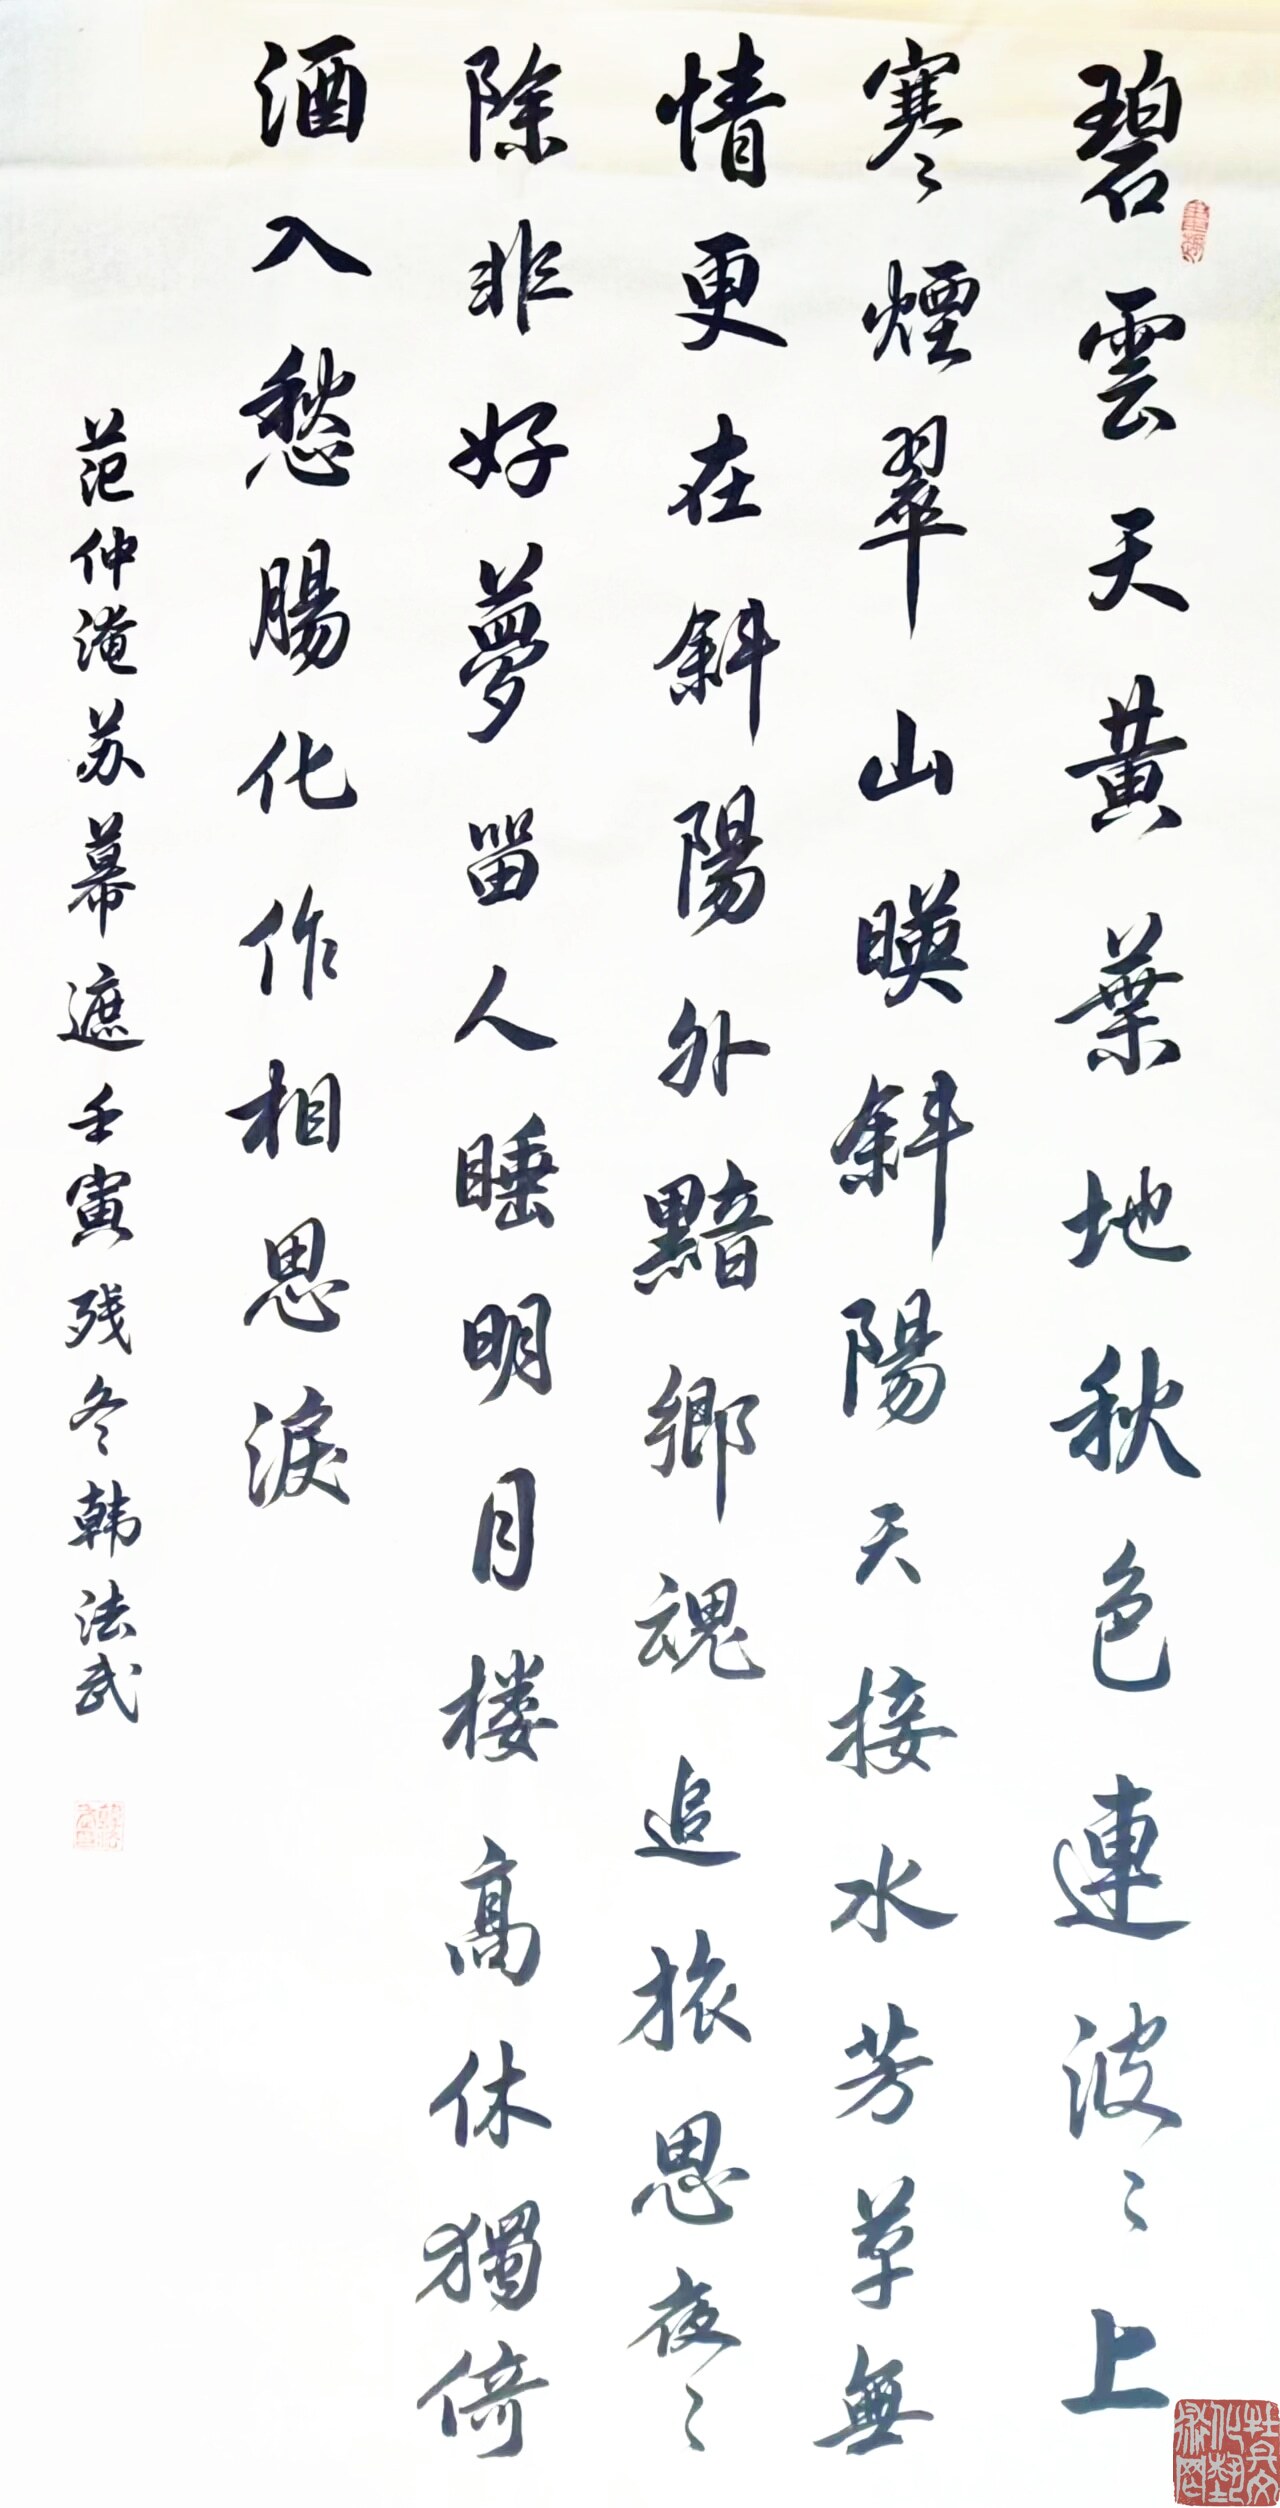 碧雲天黃葉地秋色連波〻上
寒〻煙翠山暎斜陽天接水芳草無
情更在斜陽外黯鄉魂追旅思夜〻
除非好夢畱人睡明月楼高休獨倚
酒入愁腸化作相思淚
范仲淹苏幕遮壬寅残冬韩法武